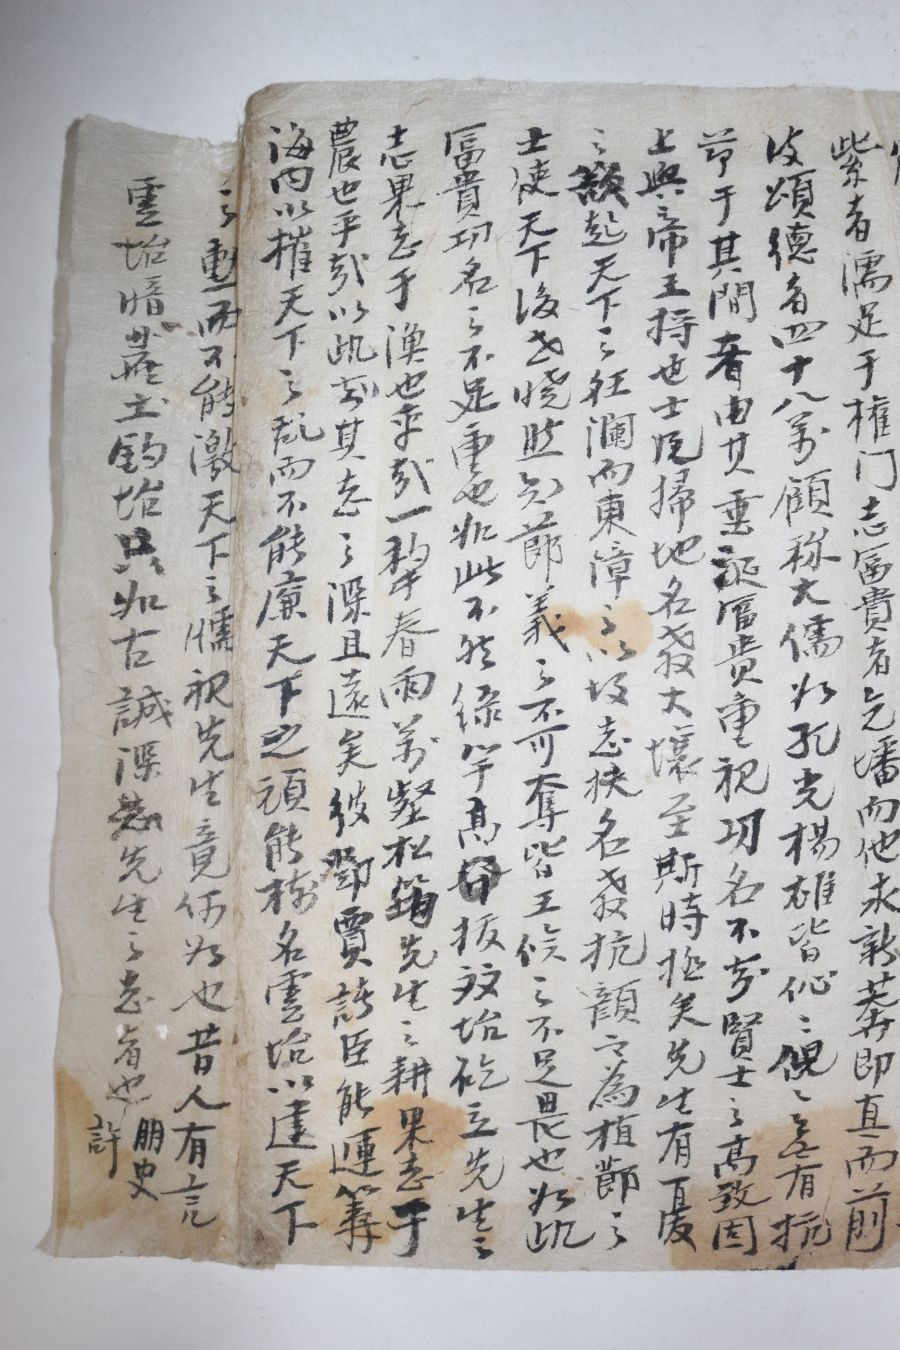 紫者濡足于權门志富貴者乞墦而他求新莽即真而前
後頌德者四十八萬顧称大儒如孔光楊雄皆伈〻俔〻無有抗
节于其間者由其重視富貴重視功名不知賢士之高致固
上與帝王持也士風掃地名教大壞至斯時極矣先生有憂
之歘起天下之狂瀾而東障之以故志扶名教抗顏而為植節之
士使天下後世曉然知節義之不可奪皆王侯之不足畏也如此
富貴功名之不足重也如此不然綠竿高拔双坮矻立先生之
志果志于漁也乎哉一犂春雨萬壑松筠先生之耕果志于
農也乎哉以此知其志之深且遠矣彼鄧賈諸臣能運籌
海内以摧天下之亂而不能廉天下之頑能标名雲坮以建天下
之勳而不能激天下之懦視先生竟何如也昔人有言
雲坮暗土釣坮只如古誠深先生之志者也
朋史
許